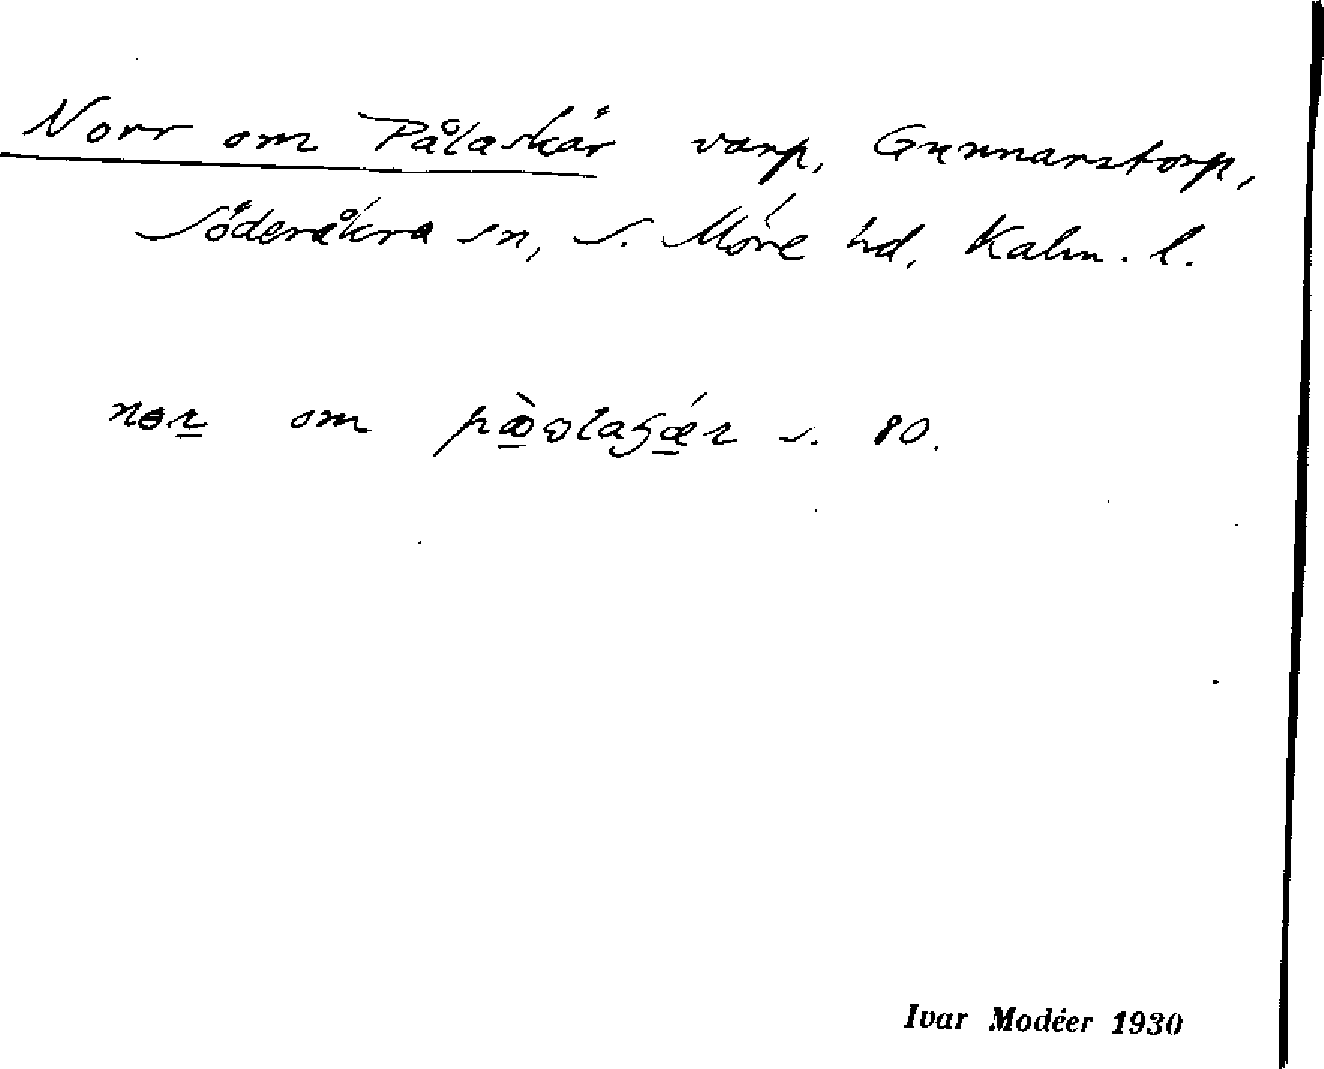 Norr om Pålaskär varp, Gunnarstorp,
Söderåkra sn, S. Möre hd, Kalm. l.
nɵr om pæ̀ɷlaʂǽr s. 80.
Ivar Modéer 1930